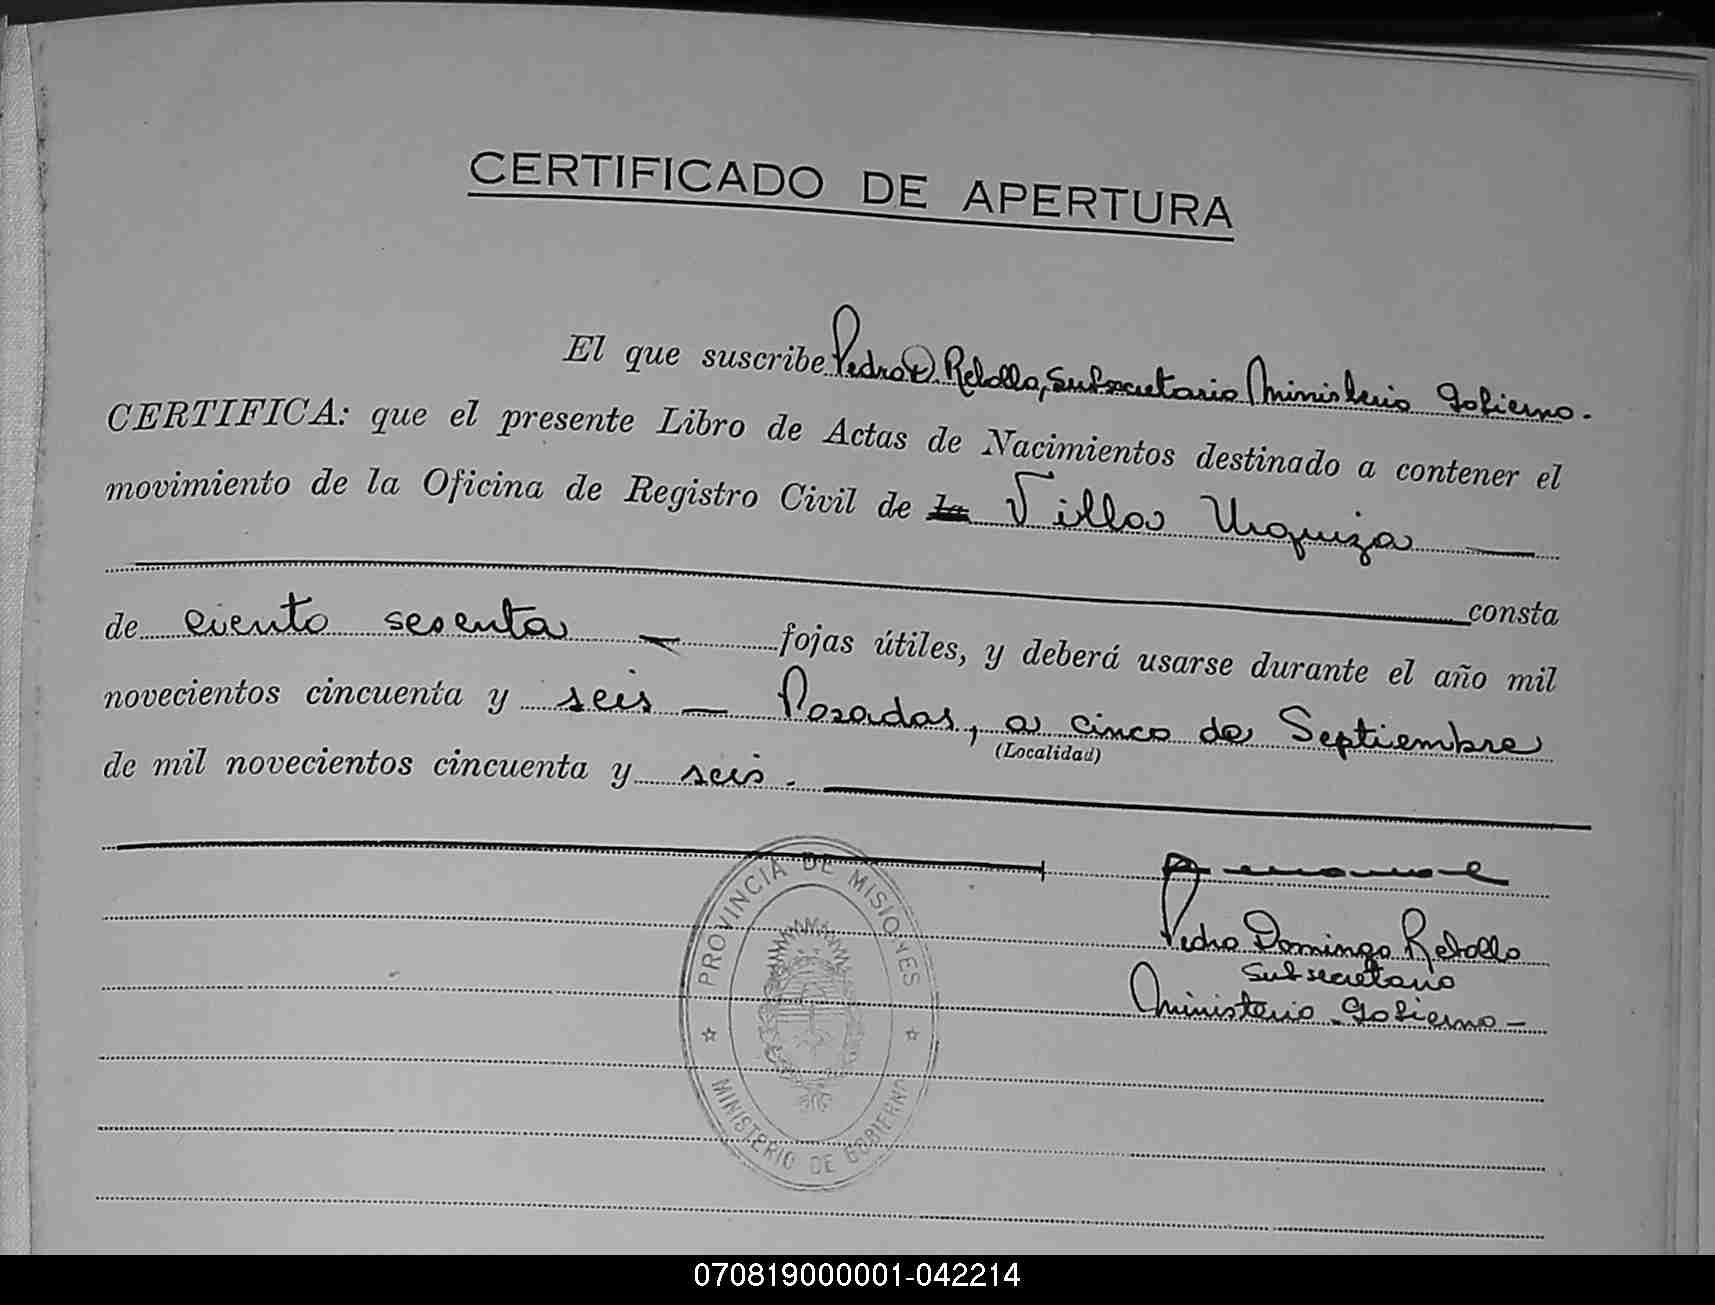 CERTIFICADO DE APERTURA
El que suscribe Pedro D. Rebollo, Subsecretario Ministerio Gobierno.-
CERTIFICA: que el presente Libro de Actas de Nacimientos destinado a contener el
movimiento de la Oficina de Registro Civil de la Villa Urquiza —
consta
de ciento sesenta — fojas útiles, y deberá usarse durante el año mil
novecientos cincuenta y seis — Posadas, a cinco de Septiembre
(Localidad)
de mil novecientos cincuenta y seis.-
Pedro Domingo Rebollo
Subsecretario
Ministerio Gobierno-
PROVINCIA DE MISIONES
MINISTERIO DE GOBIERNO
070819000001-042214